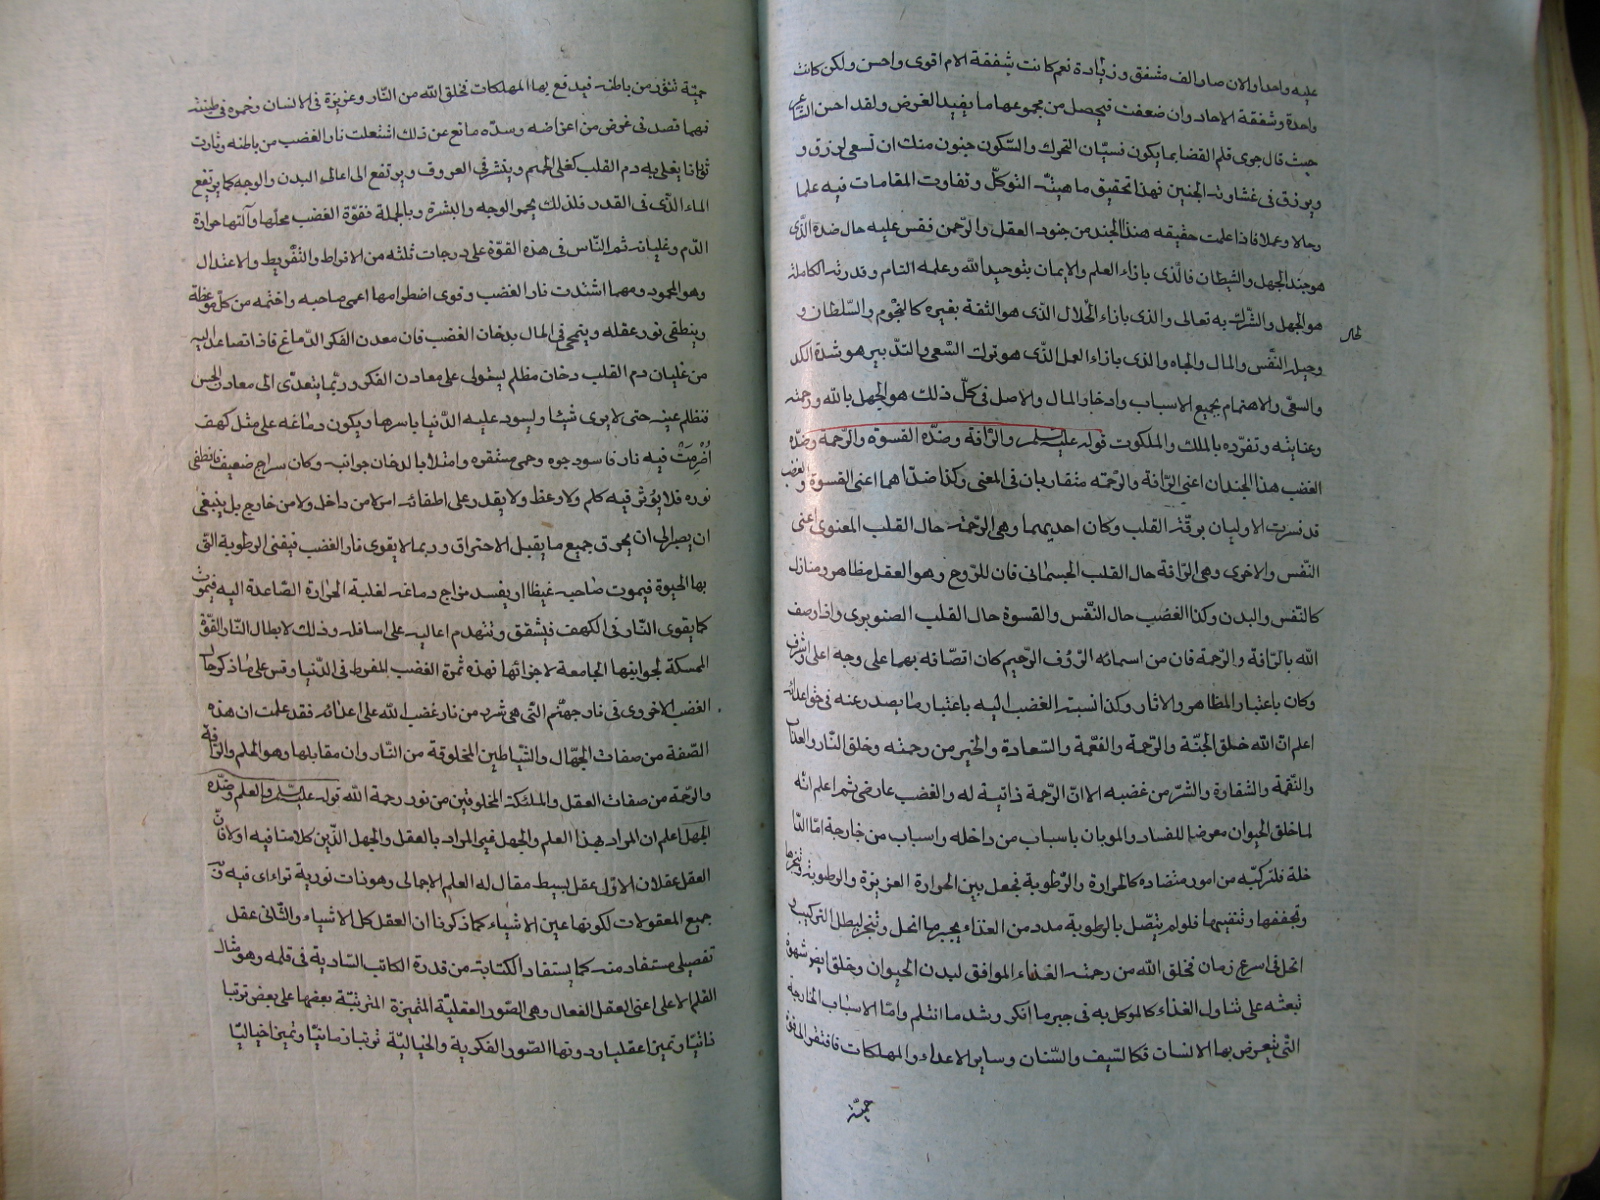 عليه واحدا والان صار الف مشفق وزيادة نعم كانت شفقة الام اقوى واحسن ولكن كانت
واحدة وشفقة الاحاد وان ضعفت فيحصل من مجموعها ما يفيد الغرض ولقد احسن الشاعر
حيث قال جرى قلم القضا بما يكون فسيّان التحرك والسّكون جنون منك ان تسعى لرزق و
ويرزق فى غشاوته الجنين فهذا تحقيق ماهيّة التوكّل وتفاوت المقامات فيه علما
وحالا وعملا فاذا علمت حقيقه هذا الجند من جنود العقل والرّحمن فقس عليه حال ضده الّذى
هو جند الجهل والشيطان فالّذى بازاء العلم والايمان بتوحيد الله وعلمه التام وقدرته الكاملة
هو الجهل والشّرك به تعالى والذى بازاء الحال الذى هو الثقة بغيره كالنجوم والسّلطان و
حال
وحيل النّفس والمال والجاه والذى بازاء العمل الذّى هو ترك السّعى والتدبير هو شدة الكد
والسعى والاهتمام بجميع الاسباب وادخار المال والاصل فى كلّ ذلك هو الجهل بالله ورحمته
وعنايته وتفرّده بالملك والملكوت قوله عليه السلم والرّافة وضدّه القسوة والرّحمة وضدّه
الغضب هذا الجندان اعنى الرّافة والرّحمة متقاربان فى المعنى وكذا ضدّا هما اعنى القسوة والغضب
قد فسرت الاوليان برقّة القلب وكان احديهما وهى الرّحمة حال القلب المعنوى اعنى
النّفس والاخرى وهى الرّافة حال القلب الجسمانى فان للرّوح وهو العقل مظاهر ومنازل
كالنّفس والبدن وكذا الغضب حال النّفس والقسوة حال القلب الصنوبرى واذا وصف
الله بالرّافة والرّحمة فان من اسمائه الرّؤف الرّحيم كان اتصافه بهما على وجه اعلى واشرف
وكان باعتبار المظاهر والاثار وكذا نسبة الغضب اليه باعتبار ما يصدر عنه فى حق اعدائه
اعلم انّ الله خلق الجنّة والرّحمة والنّعمة والسّعادة والخير من رحمته وخلق النّار والعذاب
والنّقمة والشقاوة والشّر من غضبه الا انّ الرّحمة ذاتية له والغضب عارضى ثم اعلم انّه
لما خلق الحيوان معرضا للفساد والموبان باسباب من داخله واسباب من خارجة امّا الدّا
خلة فلتركبّه من امور متضاده كالحرارة والرّطوبة فجعل بين الحرارة الغريزة والرطوبة
وتجففها وتفنيها فلو لم يتصّل بالرطوبة مدد من الغذاء يجبر ما انحل وتبخر لبطل التركيب و
انحل فى اسرع زمان فخلق الله من رحمته الغذاء الموافق لبدن الحيوان وخلق ايض شهوة
تبعثه على تناول الغذاء كالموكل به فى جبر ما انكر وشد ما انثلم وامّا الاسباب الخارجة
التّى يتعرض بها الانسان فكالسّيف والسّنان وساير الاعداء والمهلكات فافتقر الى قوة
حميّة
حميّة تثور من باطنه فيدفع بها المهلكات فخلق الله من النّار وغريزة فى الانسان وخمره فى طينته
فهما قصد فى غرض من اغراضه وسدّه مانع عن ذلك اشتعلت نار الغضب من باطنه وثارت
ثورانا يغلى به دم القلب كغلى الحميم وينتشر فى العروق ويرتفع الى اعالى البدن والوجه كما يرتفع
الماء الذّى فى القدر فلذلك يحمر الوجه والبشرة وبالجملة فقوّة الغضب محلّها وآلتها حرارة
الدّم وغليانه ثم النّاس فى هذه القوّة على درجات ثلثه من الافراط والتّفريط والاعتدال
وهو المحمود ومهما اشتدت نار الغضب وقوى اضطرامها اعمى صاحبه واختمه من كلّ موعظة
وينطفى نور عقله وينمحى فى المال بدخان الغضب فان معدن الفكر الدّماغ فاذا تصاعد اليه
من غليان دم القلب دخان مظلم يستولى على معادن الفكر وربّما يتعدّى الى معادن الحس
فتظلم عينه حتى لا يرى شيئا ويسود عليه الدّنيا باسرها ويكون دماغه على مثل كهف
اُضْرِمَتْ فيه نار فاسود جوه وحمى مستقره وامتلا بالدخان جوانبه وكان سراج ضعيف فانطفى
نوره فلا يؤثر فيه كلم ولا وعظ ولا يقدر على اطفائه امر لا من داخل ولا من خارج بل ينبغى
ان يصبر الى ان يحرق جميع ما يقبل الاحتراق وربما لا يقوى نار الغضب فيفنى الرطوبة التى
بها الحيوة فيموت صاحبه غيظا او يفسد مزاج دماغه لغلبة الحرارة الصّاعدة اليه فيموت
كما يقوى النّار فى الكهف فيشقق وتنهدم اعاليه على اسافله وذلك لابطال النّار القوّة
الممسكة لجوانبها الجامعة لاجزائها فهذه ثمرة الغضب المفرط فى الدّنيا وقس على ما ذكر حال
الغضب الاخروى فى نار جهنّم التى هى شرر من نار غضب الله على اعدائه فقد علمت ان هذه
الصّفة من صفات الجهّال والشّياطين المخلوقة من النّار وان مقابلها وهو الحلم والرّافة
والرّحمة من صفات العقل والملئكة المخلوقين من نور رحمة الله قوله عليه السّلم والعلم وضدّه
الجهل اعلم ان المراد بهذا العلم والجهل غير المراد بالعقل والجهل الذّين كلامنا فيه اولا فان
العقل عقلان الاوّل عقل بسيط يقال له العلم الاجمالى وهو ذات نورية تراءاى فيه
جميع المعقولات لكونها عين الاشياء كما ذكرنا ان العقل كل الاشياء والثّانى عقل
تفصيلى مستفاد منه كما يستفاد الكتابة من قدرة الكاتب السّادية فى قلمه وهو مثال
القلم الاعلى اعنى العقل الفعال وهى الصّور العقلية المتميزة المترتبّة بعضها على بعض ترتبا
ذاتيّا وتميزا عقليا ودونها الصّور الفكرية والخياليّة ترتبا زمانيّا وتميزا خياليّا